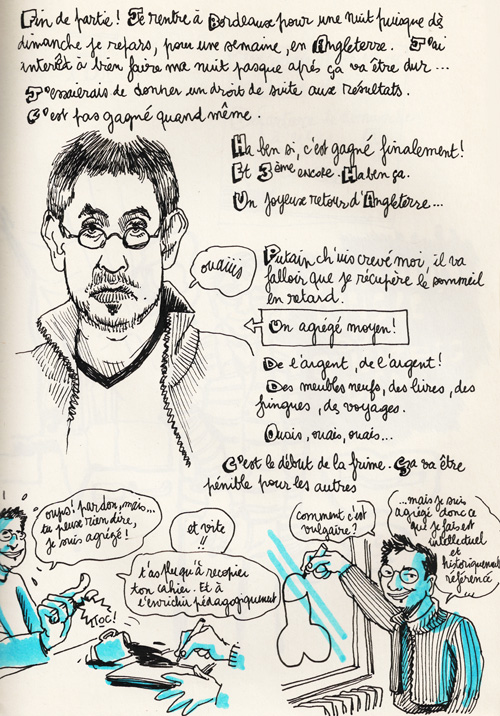 Fin de partie! Je rentre à Bordeaux pour une nuit puisque dès
dimanche je repars, pour une semaine, en Angleterre. J'ai
intérêt à bien faire ma nuit pasque après ça va être dur...
J'essaierais de donner un droit de suite aux résultats.
C'est pas gagné quand même.
Ha ben si, c'est gagné finalement!
Et 3ème encore. Ha ben ça.
Un joyeux retour d'Angleterre...
ouaiiis
Putain ch'uis crevé moi, il va
falloir que je récupère le sommeil
en retard.
Un agrégé moyen!
De l'argent, de l'argent!
Des meubles neufs, des livres, des
fringues, de voyages.
Ouais, ouais, ouais...
C'est le début de la frime. Ça va être
pénible pour les autres
oups! pardon, mais...
tu peux rien dire,
je suis agrégé!
TOC!
et vite
!!
t'as plu qu'à recopier
ton cahier. Et à
l'enrichir pédagogiquement
comment c'est
vulgaire?
...mais je suis
agrégé donc ce
que je fais est
intellectuel
et
historiquement
référencé